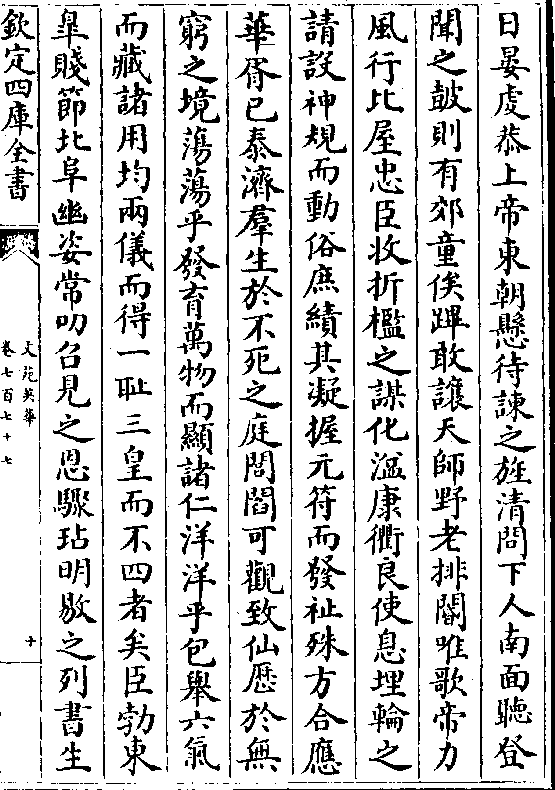 日晏虔恭上帝東朝懸待諫之旌清問下人南面聽登
聞之鼓則有郊童俟蹕敢讓天師野老排闥唯歌帝力
風行比屋忠臣收折檻之謀化溢康衢良使息埋輪之
請設神規而動俗庶績其凝握元符而發祉殊方合應
華胥已泰濟羣生於不死之庭閶闔可觀致仙歷於無
窮之境蕩蕩乎發育萬物而顯諸仁洋洋乎包舉六氣
而藏諸用均兩儀而得一耻三皇而不四者矣臣勃東
臯賤節北阜幽姿常叨召見之恩驟玷明敭之列書生
欽定四庫全書
文苑英華
卷七百七十七
十